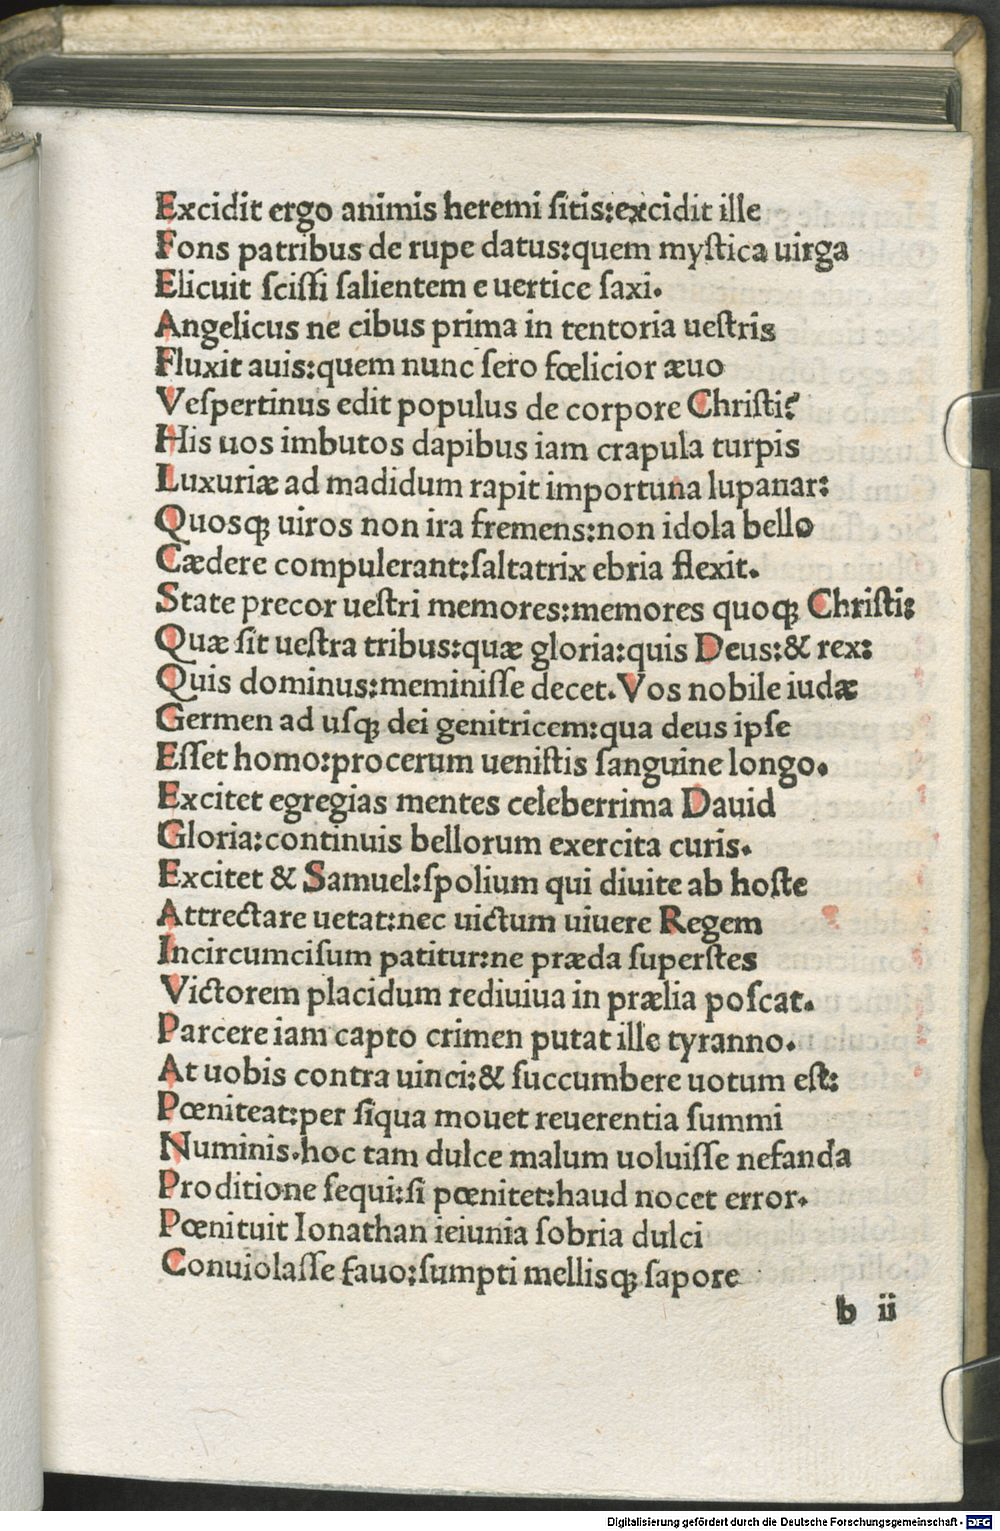 Excidit ergo animis heremi ſitis:excidit ille
Fons patribus de rupe datus:quem myſtica uirga
Elicuit ſciſſi ſalientem e uertice ſaxi.
Angelicus ne cibus prima in tentoria ueſtris
Fluxit auis:quem nunc ſero fœlicior æuo
Veſpertinus edit populus de corpore Chriſti?
His uos imbutos dapibus iam crapula turpis
Luxuriæ ad madidum rapit importuna lupanar:
Quosꝗ uiros non ira fremens:non idola bello
Cædere compulerant:ſaltatrix ebria flexit.
State precor ueſtri memores:memores quoꝗ Chriſti:
Quæ ſit ueſtra tribus:quæ gloria:quis Deus:& rex:
Quis dominus:meminiſſe decet.Vos nobile iudæ
Germen ad uſꝗ dei genitricem:qua deus ipſe
Eſſet homo:procerum ueniſtis ſanguine longo.
Excitet egregias mentes celeberrima Dauid
Gloria:continuis bellorum exercita curis.
Excitet & Samuel:ſpolium qui diuite ab hoſte
Attrectare uetat:nec uictum uiuere Regem
Incircumciſum patitur:ne præda ſuperſtes
Victorem placidum rediuiua in prælia poſcat.
Parcere iam capto crimen putat ille tyranno.
At uobis contra uinci:& ſuccumbere uotum eſt:
Pœniteat:per ſiqua mouet reuerentia ſummi
Numinis.hoc tam dulce malum uoluiſſe nefanda
Proditione ſequi:ſi pœnitet:haud nocet error.
Pœnituit Ionathan ieiunia ſobria dulci
Conuiolaſſe fauo:ſumpti mellisꝗ ſapore
b ii
Digitalisierung gefördert durch die Deutsche Forschungsgemeinschaft - DFG